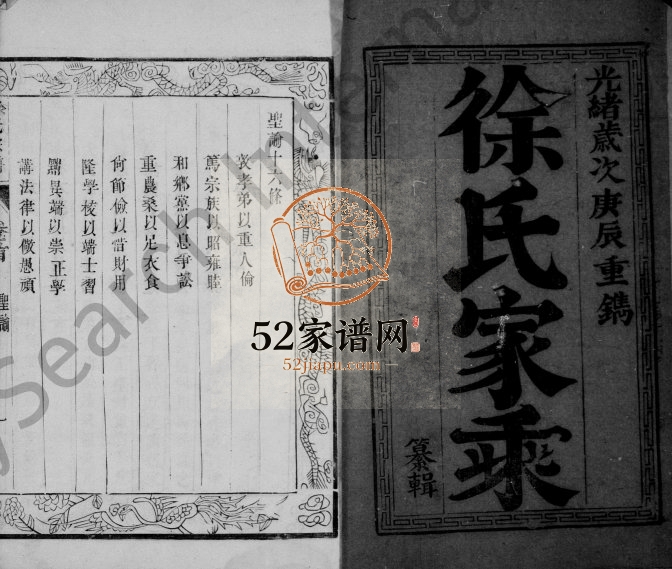 光緒歲次庚辰重鐫
徐氏家乘
纂輯
聖諭十六條
敦孝弟以重人倫
篤宗族以昭雍睦
和鄉黨以息爭訟
重農桑以足衣食
尚節儉以惜財用
隆學校以端士習
黜異端以崇正學
講法律以儆愚頑
聖諭
52家谱网
52jiapu.com